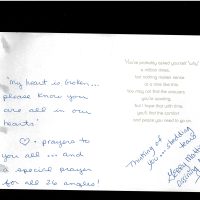 "My heart is broken...
please know you
are all in our
hearts"
♡ + prayers to
you all ... and
a special prayer
for all 26 angels!
You've probably asked yourself "why"
a million times,
but nothing makes sense
at a time like this.
You may not find the answers
you're seeking,
but I hope that with time,
you'll find the comfort
and peace you need to go on.
Thinking of
you ...